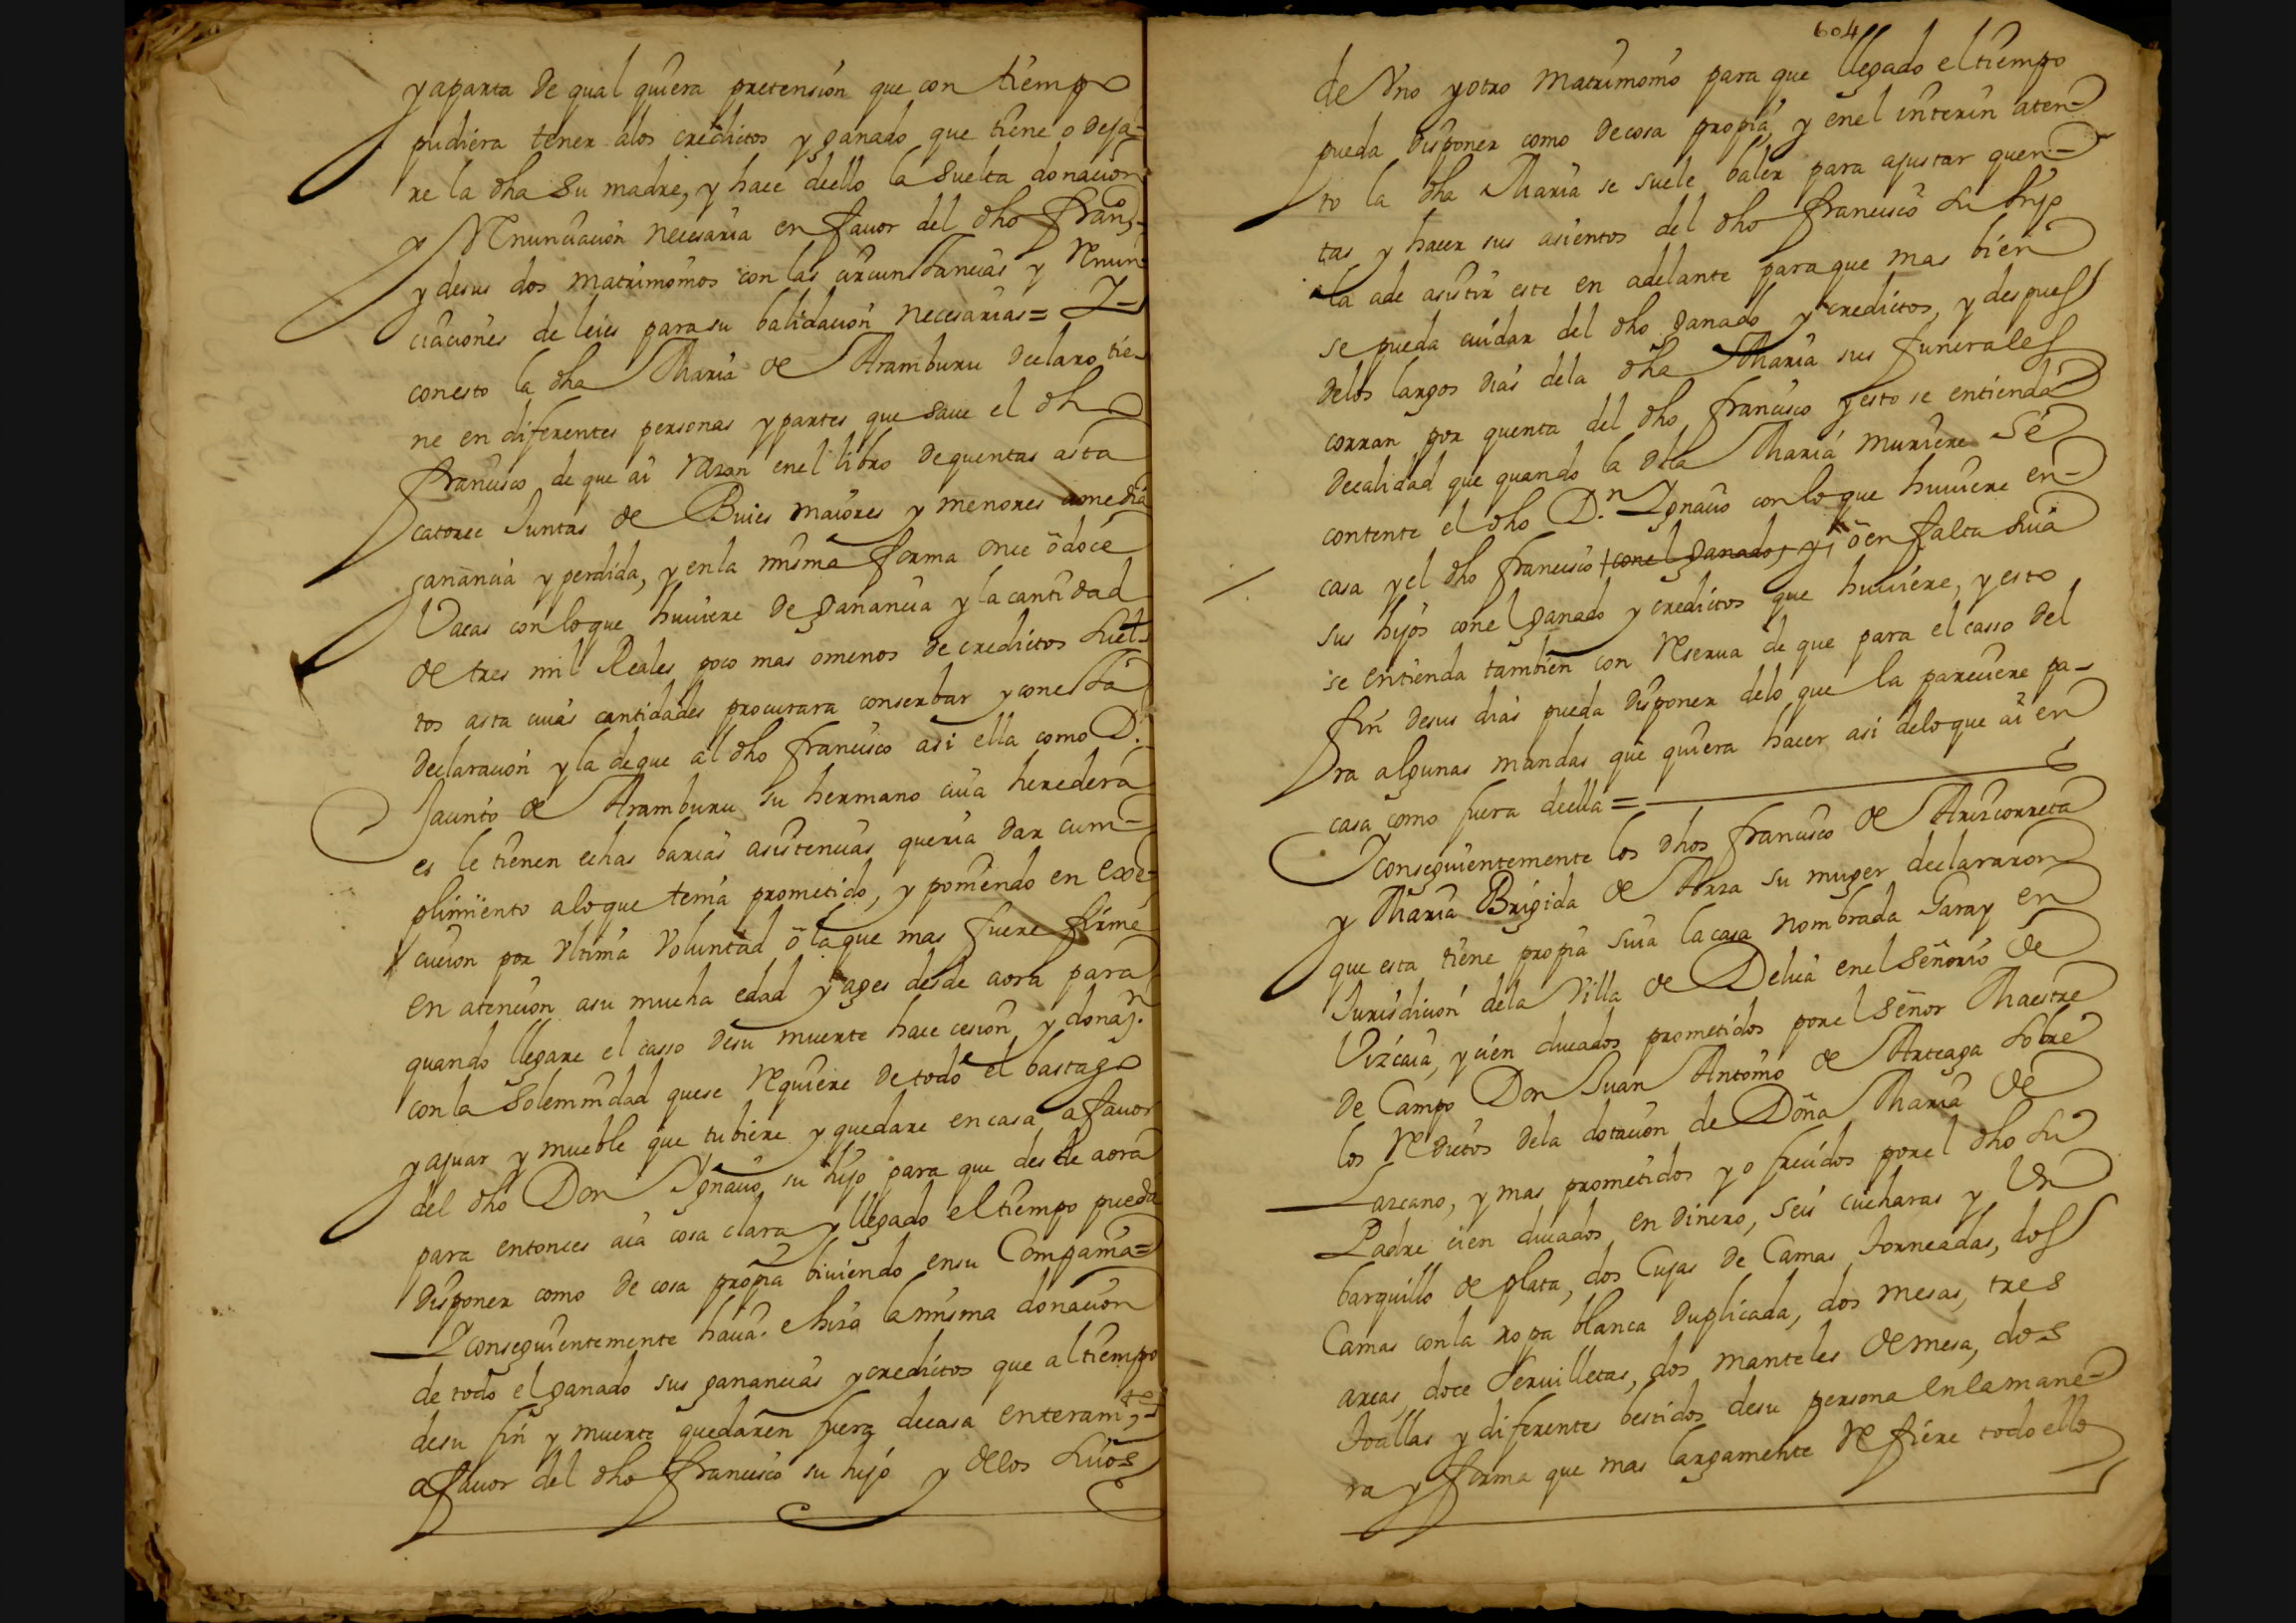 y aparta de qual quiera pretension que con tiempo
pudiera tener alos credictos y ganado que tiene o deja=
re la dha su madre, y hace dello la suelta donacion
y Renunciacion necesaria en fauor del dho fran,co
y desus dos matrimonios con las circunstancias y Renun
ciaciones de leies para su balidacion necesarias = I=
conesto la dha Maria de Aramburu declaro tie-
ne en diferentes personas y partes que saue el dho
francisco de que ai razon enel libro de quentas asta
catorce Juntas de Buies maiores y menores a media
ganancia y perdida, y en la misma forma once ó doce
Vacas con lo que huuiere de ganancia y la cantidad
de tres mil Reales poco mas o menos de credictos suel-
tos asta cuias cantidades procurara conserbar y con esta
declaracion y la de que al dho francisco asi ella como D.
Jacinto de Aramburu su hermano cuia heredera
es le tienen echas barias asistencias queria dar cum-
plimiento alo que tenia prometido, y poniendo en exe-
cucion por Vltima Voluntad ó la que mas fuere firme
en atencion asu mucha edad y ages desde aora para
quando llegare el casso desu muerte hace cesion y donaz.n
con la solemnidad que se Requiere de todo el bastago
y ajuar y mueble que tubiere y quedare en casa a fauor
del dho Don Ignacio su hijo para que desde aora
para entonces aia cosa clara y llegado el tiempo pueda
disponer como de cosa propia biuiendo ensu Compania=
I conseguientemente hacia. e hizo la misma donacion
de todo el ganado sus ganancias y credictos que al tiempo
desu fin y muerte quedaren fuera de casa enteram,te
a fauor del dho francisco su hijo y de los suios
604
de Vno y otro Matrimonio para que llegado el tiempo
pueda disponer como de cosa propia y enel interin aten=
to la dha Maria se suele baler para ajustar quen=
tas y hacer sus asientos del dho francisco su hijo
la ade asistir este en adelante para que mas bien
se pueda cuidar del dho ganado y credictos, y despues
delos largos dias dela dha Maria sus funerales
corran por quenta del dho francisco y esto se entienda
de calidad que quando la dha Maria muriere se
contente el dho D.n Ignacio con lo que huuiere en=
casa y el dho francisco con el ganado, y, ó en falta suia
sus hijos con el ganado y credictos que huuiere, y esto
se entienda tambien con Reserua de que para el casso del
fin desus dias pueda disponer delo que la pareciere pa-
ra algunas mandas que quiera hacer asi delo que ai en
casa como fuera de ella =
I conseguientemente los dhos francisco de Arizcorreta
y Maria Brigida de Arza su muger declararon
que esta tiene propia suia la casa nombrada Garay en
Jurisdicion dela Villa de Deua enel Señorio de
Vizcaia, y cien ducados prometidos por el señor Maestre
de Campo Don Juan Antonio de Arteaga sobre
los Redictos dela dotacion de Doña Maria de
Lazcano, y mas prometidos y ofrecidos por el dho su
Padre cien ducados en dinero, seis cucharas y Vn
barquillo de plata, dos Cujas de Camas torneadas, dos
Camas con la ropa blanca duplicada, dos mesas, tres
arcas, doce seruilletas, dos manteles de mesa, dos
toallas y diferentes bestidos desu persona en la mane=
ra y forma que mas largamente Refiere todo ello